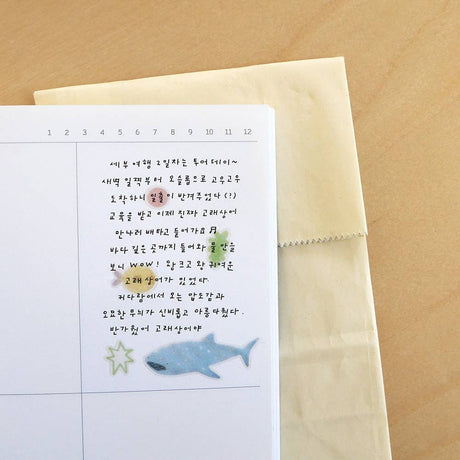 1 2 3 4 5 6 7 8 9 10 11 12
세부여행 2일차는 투어데이~
새벽 일찍부터 오슬롭으로 고우고우
도착하니 일출이 반겨주었다 (?)
교육을 받고 이제 진짜 고래상어
만나러 배타고 들어가요
바다 깊은 곳까지 들어와 물 안을
보니 WOW! 왕크고 왕귀여운
고래상어가 있었다.
커다람에서 오는 압도감과
오묘한 무늬가 신비롭고 아름다웠다.
반가웠어 고래상어야